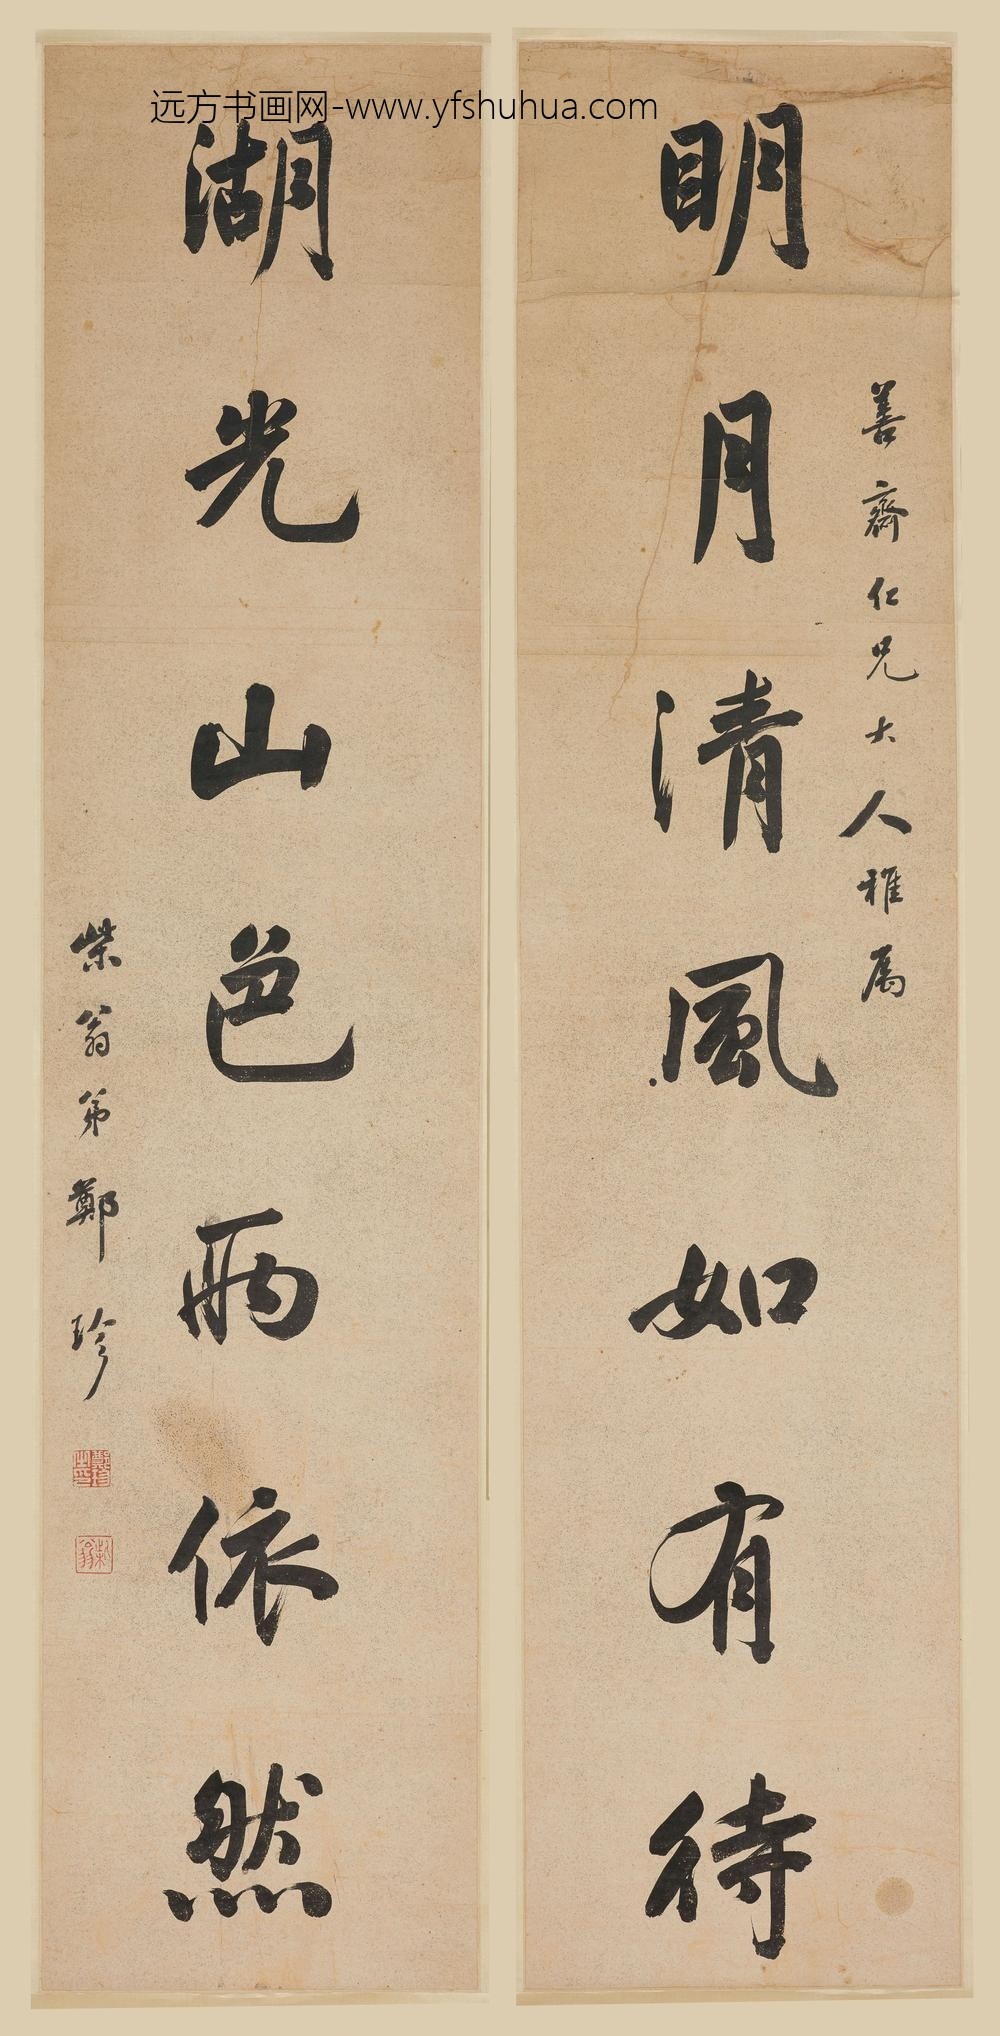 远方书画网-www.yfshuhua.com
善齋仁兄大人雅属
明月清風如有待
湖光山色兩依然
柴翁弟鄭珍
鄭珍之印
柴翁